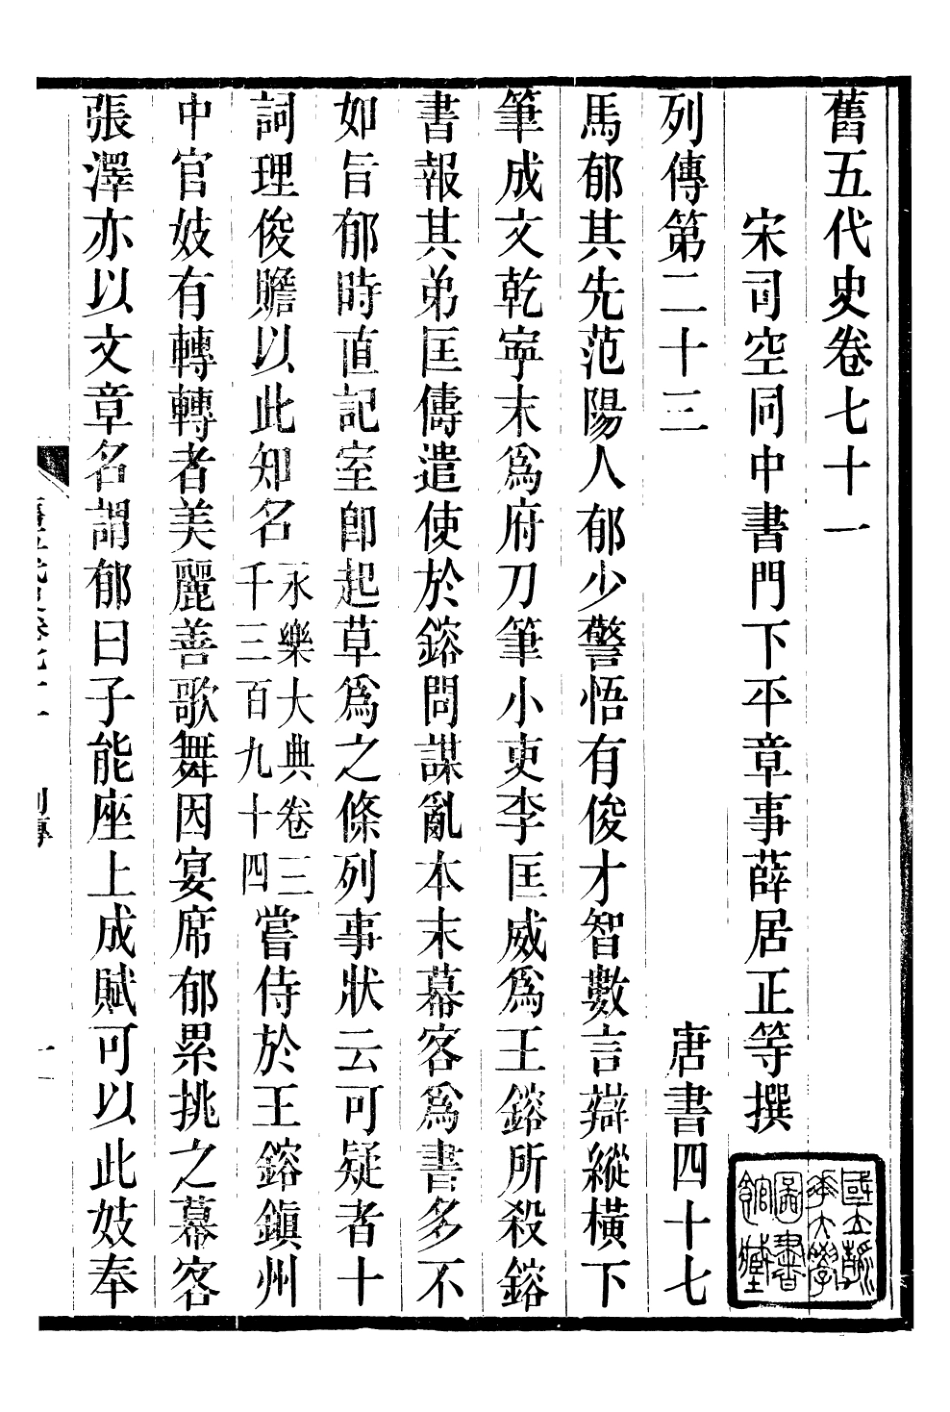 舊五代史卷七十一
宋司空同中書門下平章事薛居正等撰
列傳第二十三　唐書四十七
馬郁其先范陽人郁少警悟有俊才智數言辯縱橫下
筆成文乾寧末爲府刀筆小吏李匡威爲王鎔所殺鎔
書報其弟匡儔遣使於鎔問謀亂本末幕客爲書多不
如旨郁時直記室卽起草爲之條列事狀云可疑者十
詞理俊贍以此知名永樂大典卷三千三百九十四嘗侍於王鎔鎮州
中官妓有轉轉者美麗善歌舞因宴席郁累挑之幕客
張澤亦以文章名謂郁曰子能座上成賦可以此妓奉
舊五代史卷七十一　列傳　一